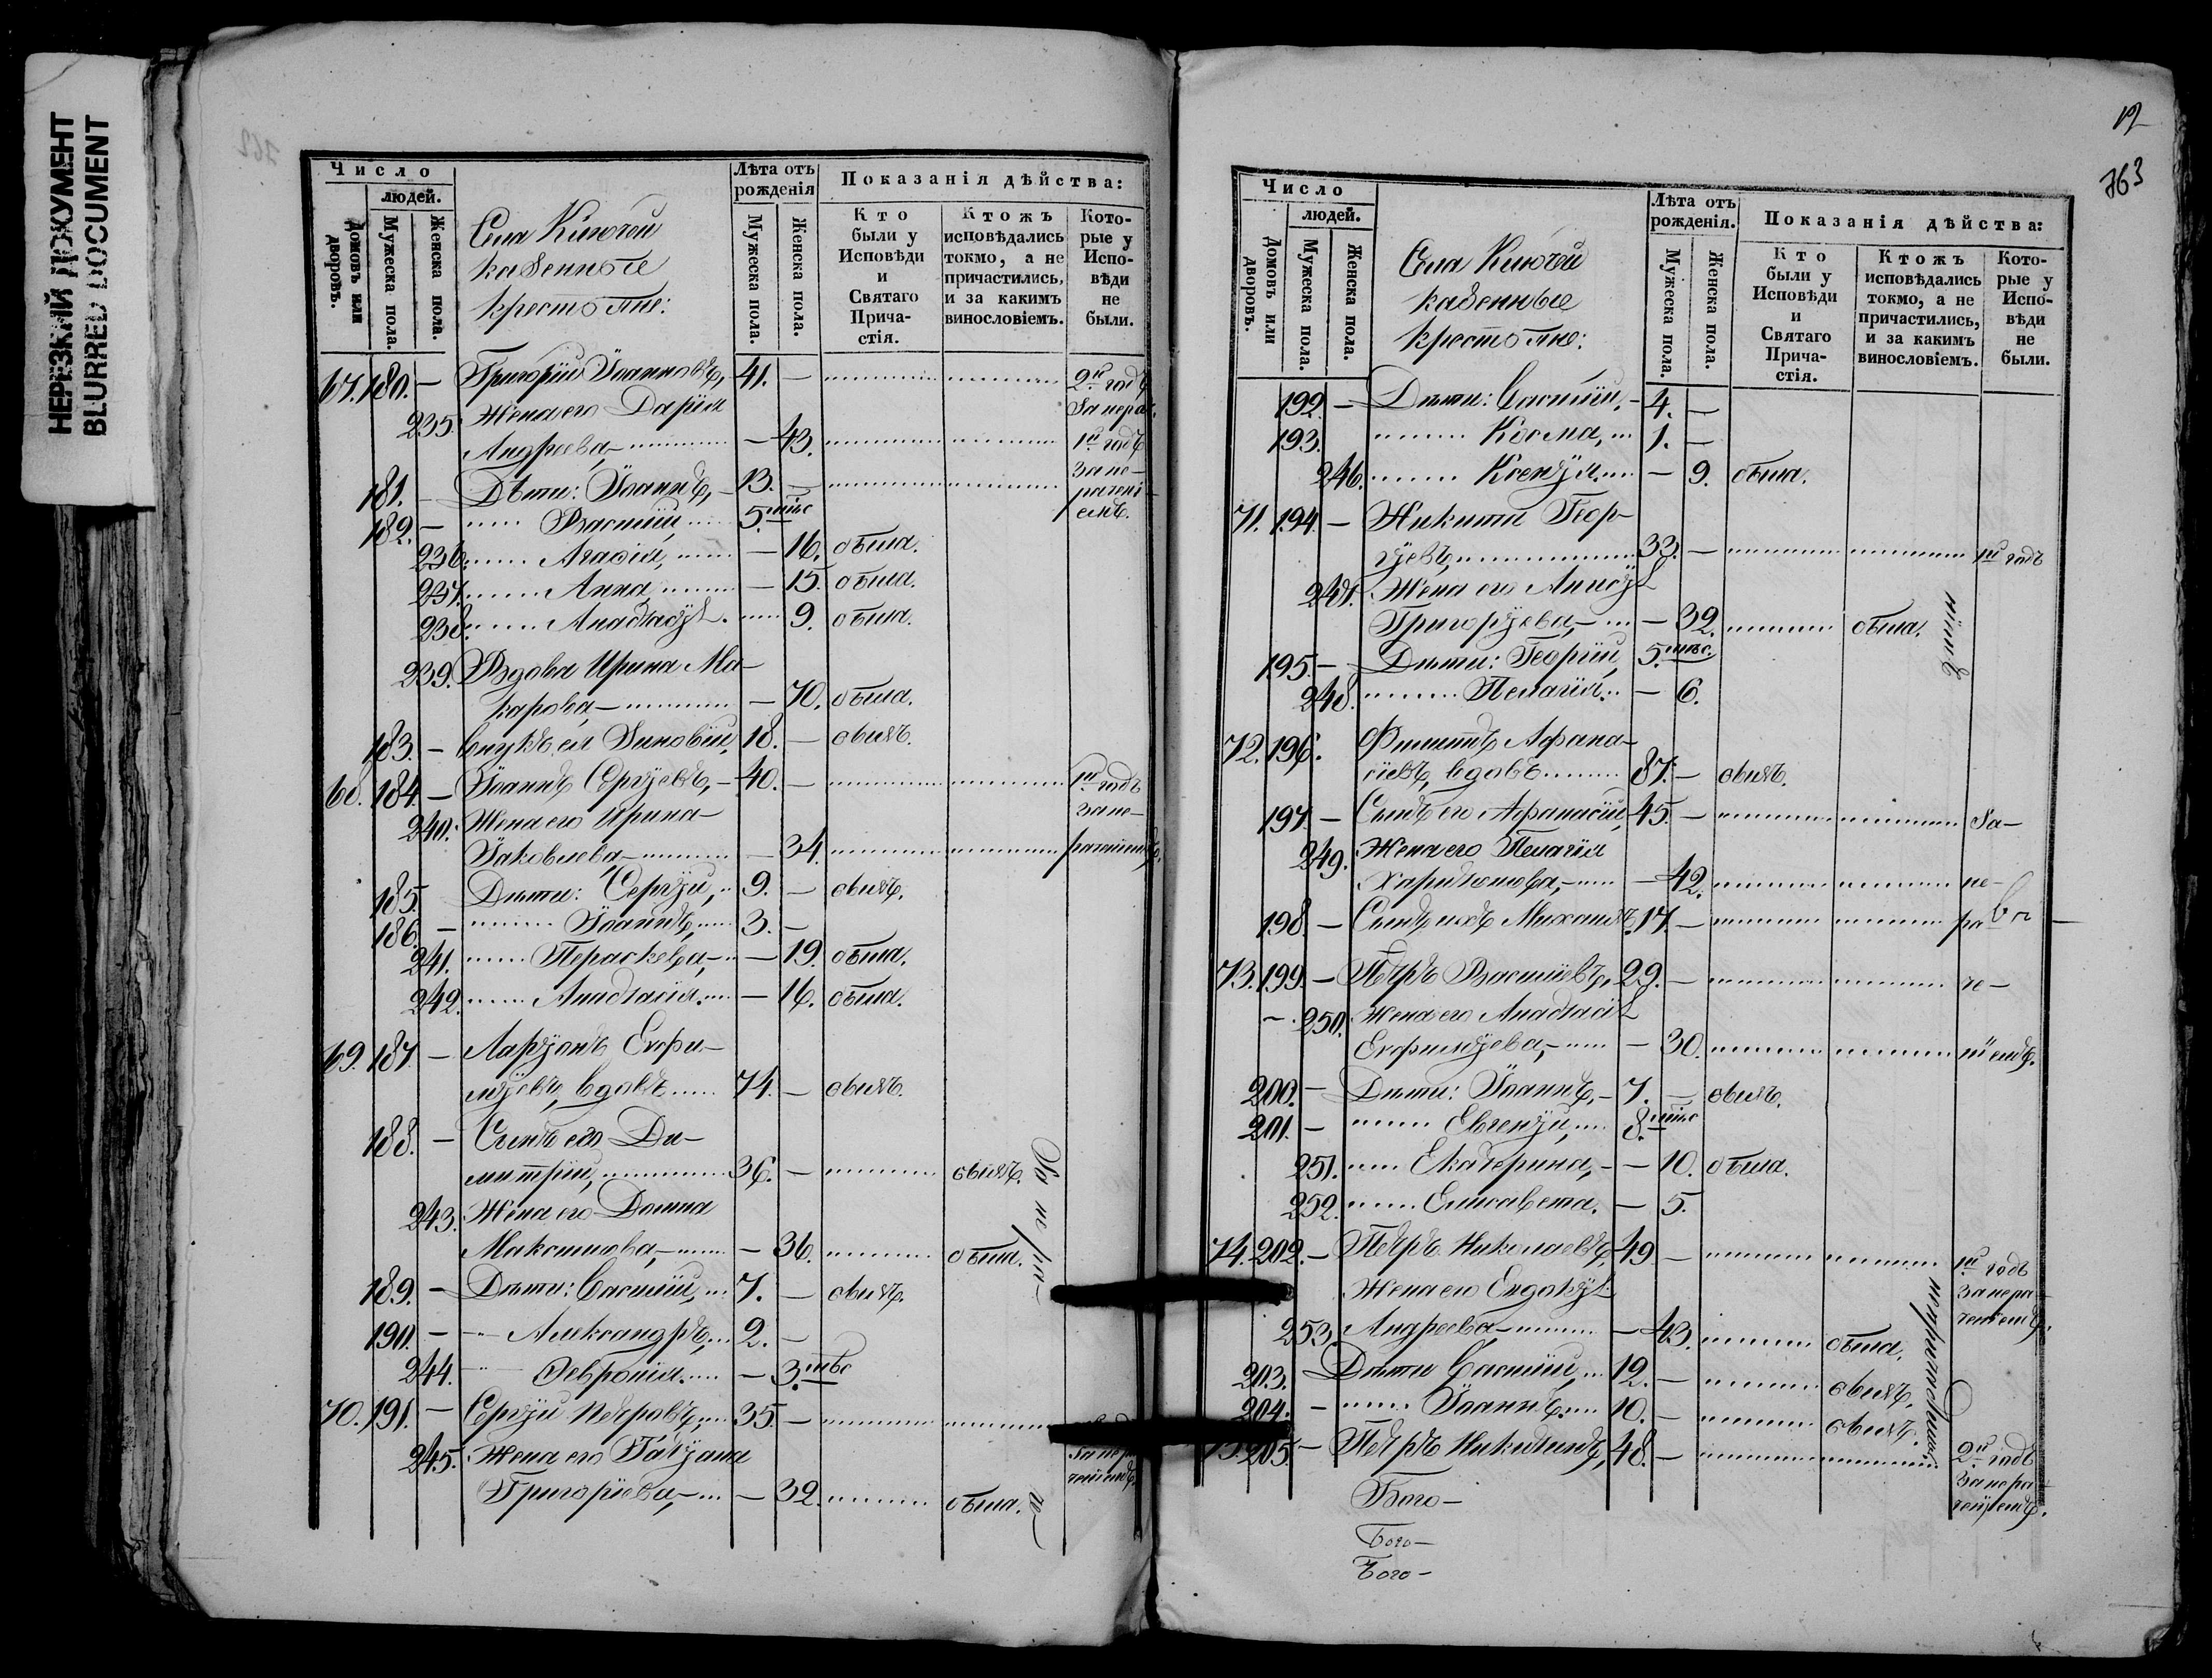 НЕРЕЗКИЙ ДОКУМЕНТ
BLURRED DOCUMENT
Число
людей.
Домовъ или дворовъ.
Мужеска пола.
Женска пола.
Села Ключей
казенные
крестьяне:
Лѣта отъ рожденія
Мужеска пола.
Женска пола.
Показанія дѣйства:
Кто были у Исповѣди и Святаго Прича-стія.
Ктожъ исповѣдались токмо, а не причастились, и за какимъ винословіемъ.
Кото-рые у Испо-вѣди не были.
67. 180. — Григорій Іоанновъ, 41. — 2й годъ
235. Жена его Дарія За нера-
Андреева, — 43. 1й годъ
181. — Дѣти: Іоаннъ, 13. — за не-
182. — Василій, 5. мѣс рачені-
емъ.
236. Агафія, — 16. была.
237. Анна, — 15. была.
238. Анастасія. 9. была.
239. Вдова Ирина Ма-
карова, — 70. была.
183. — Внукъ ея Зиновій, 18. — былъ.
68. 184. — Іоаннъ Сергіевъ, — 40. — 1й годъ
240. Жена его Ирина за не-
Іаковлева, — 34. раченіемъ.
185. Дѣти: Сергій, 9. — былъ.
186. — Іоаннъ, 3. —
241. Параскева, — 19. была.
242. Анастасія. — 16. была.
69. 187. — Ларіонъ Евфи-
міевъ, вдовъ 74. — былъ.
188. — Сынъ его Ди-
митрій, 36. — былъ.
243. Жена его Домна
Максимова, — 36. была.
По не ра-
189. — Дѣти: Василій, 7. — былъ.
190. — Александръ, 2. —
244. Феврония. — 3. мѣс
70. 191. — Сергій Петровъ, 35. —
245. Жена его Татіана За нера-
ченіемъ.
Григоріева, — 32. была. че-
12
363
Число
людей.
Домовъ или дворовъ.
Мужеска пола.
Женска пола.
Села Ключей
казенные
крестьяне:
Лѣта отъ рожденія.
Мужеска пола.
Женска пола.
Показанія дѣйства:
Кто были у Исповѣди и Святаго Прича-стія.
Ктожъ исповѣдались токмо, а не причастились, и за какимъ винословіемъ.
Кото-рые у Испо-вѣди не были.
192. — Дѣти: Василій, — 4. —
193. Косма, 1. —
246. Ксенія — 9. была.
71. 194. — Никита Геор-
гіевъ, 33. — 1й годъ
247. Жена его Анисія
Григоріева, — 32. была.
ніемъ
195. — Дѣти: Георгій, 5. мѣс.
248. Пелагія — 6.
72. 196. Филиппъ Афана-
сіевъ, вдовъ 87. — былъ.
197. — Сынъ его Афанасій, 45. — За-
249. Жена его Пелагія
Харитонова, — 42. не-
198. — Сынъ ихъ Михаилъ, 17. — ра
73. 199. — Петръ Василіевъ, 29. — че-
250. Жена его Анастасія
Евфиміева, — 30. ніемъ.
200. — Дѣти: Іоаннъ, — 7. — былъ.
201. — Евгеній, 8. мѣс
251. Екатерина, — 10. была.
252. Елисавета. — 5.
74. 202. — Петръ Николаевъ, 49 — 1й годъ
Жена его Евдокія за нера-
253. Андреева, — 43. была. ченіемъ.
203. Дѣти Василій, 12. — былъ.
204. — Іоаннъ. 10. — былъ.
75. 205. — Петръ Никитинъ, 48. — 2й годъ
за нера-
ченіемъ.
Бого-
Бого-
Бого-